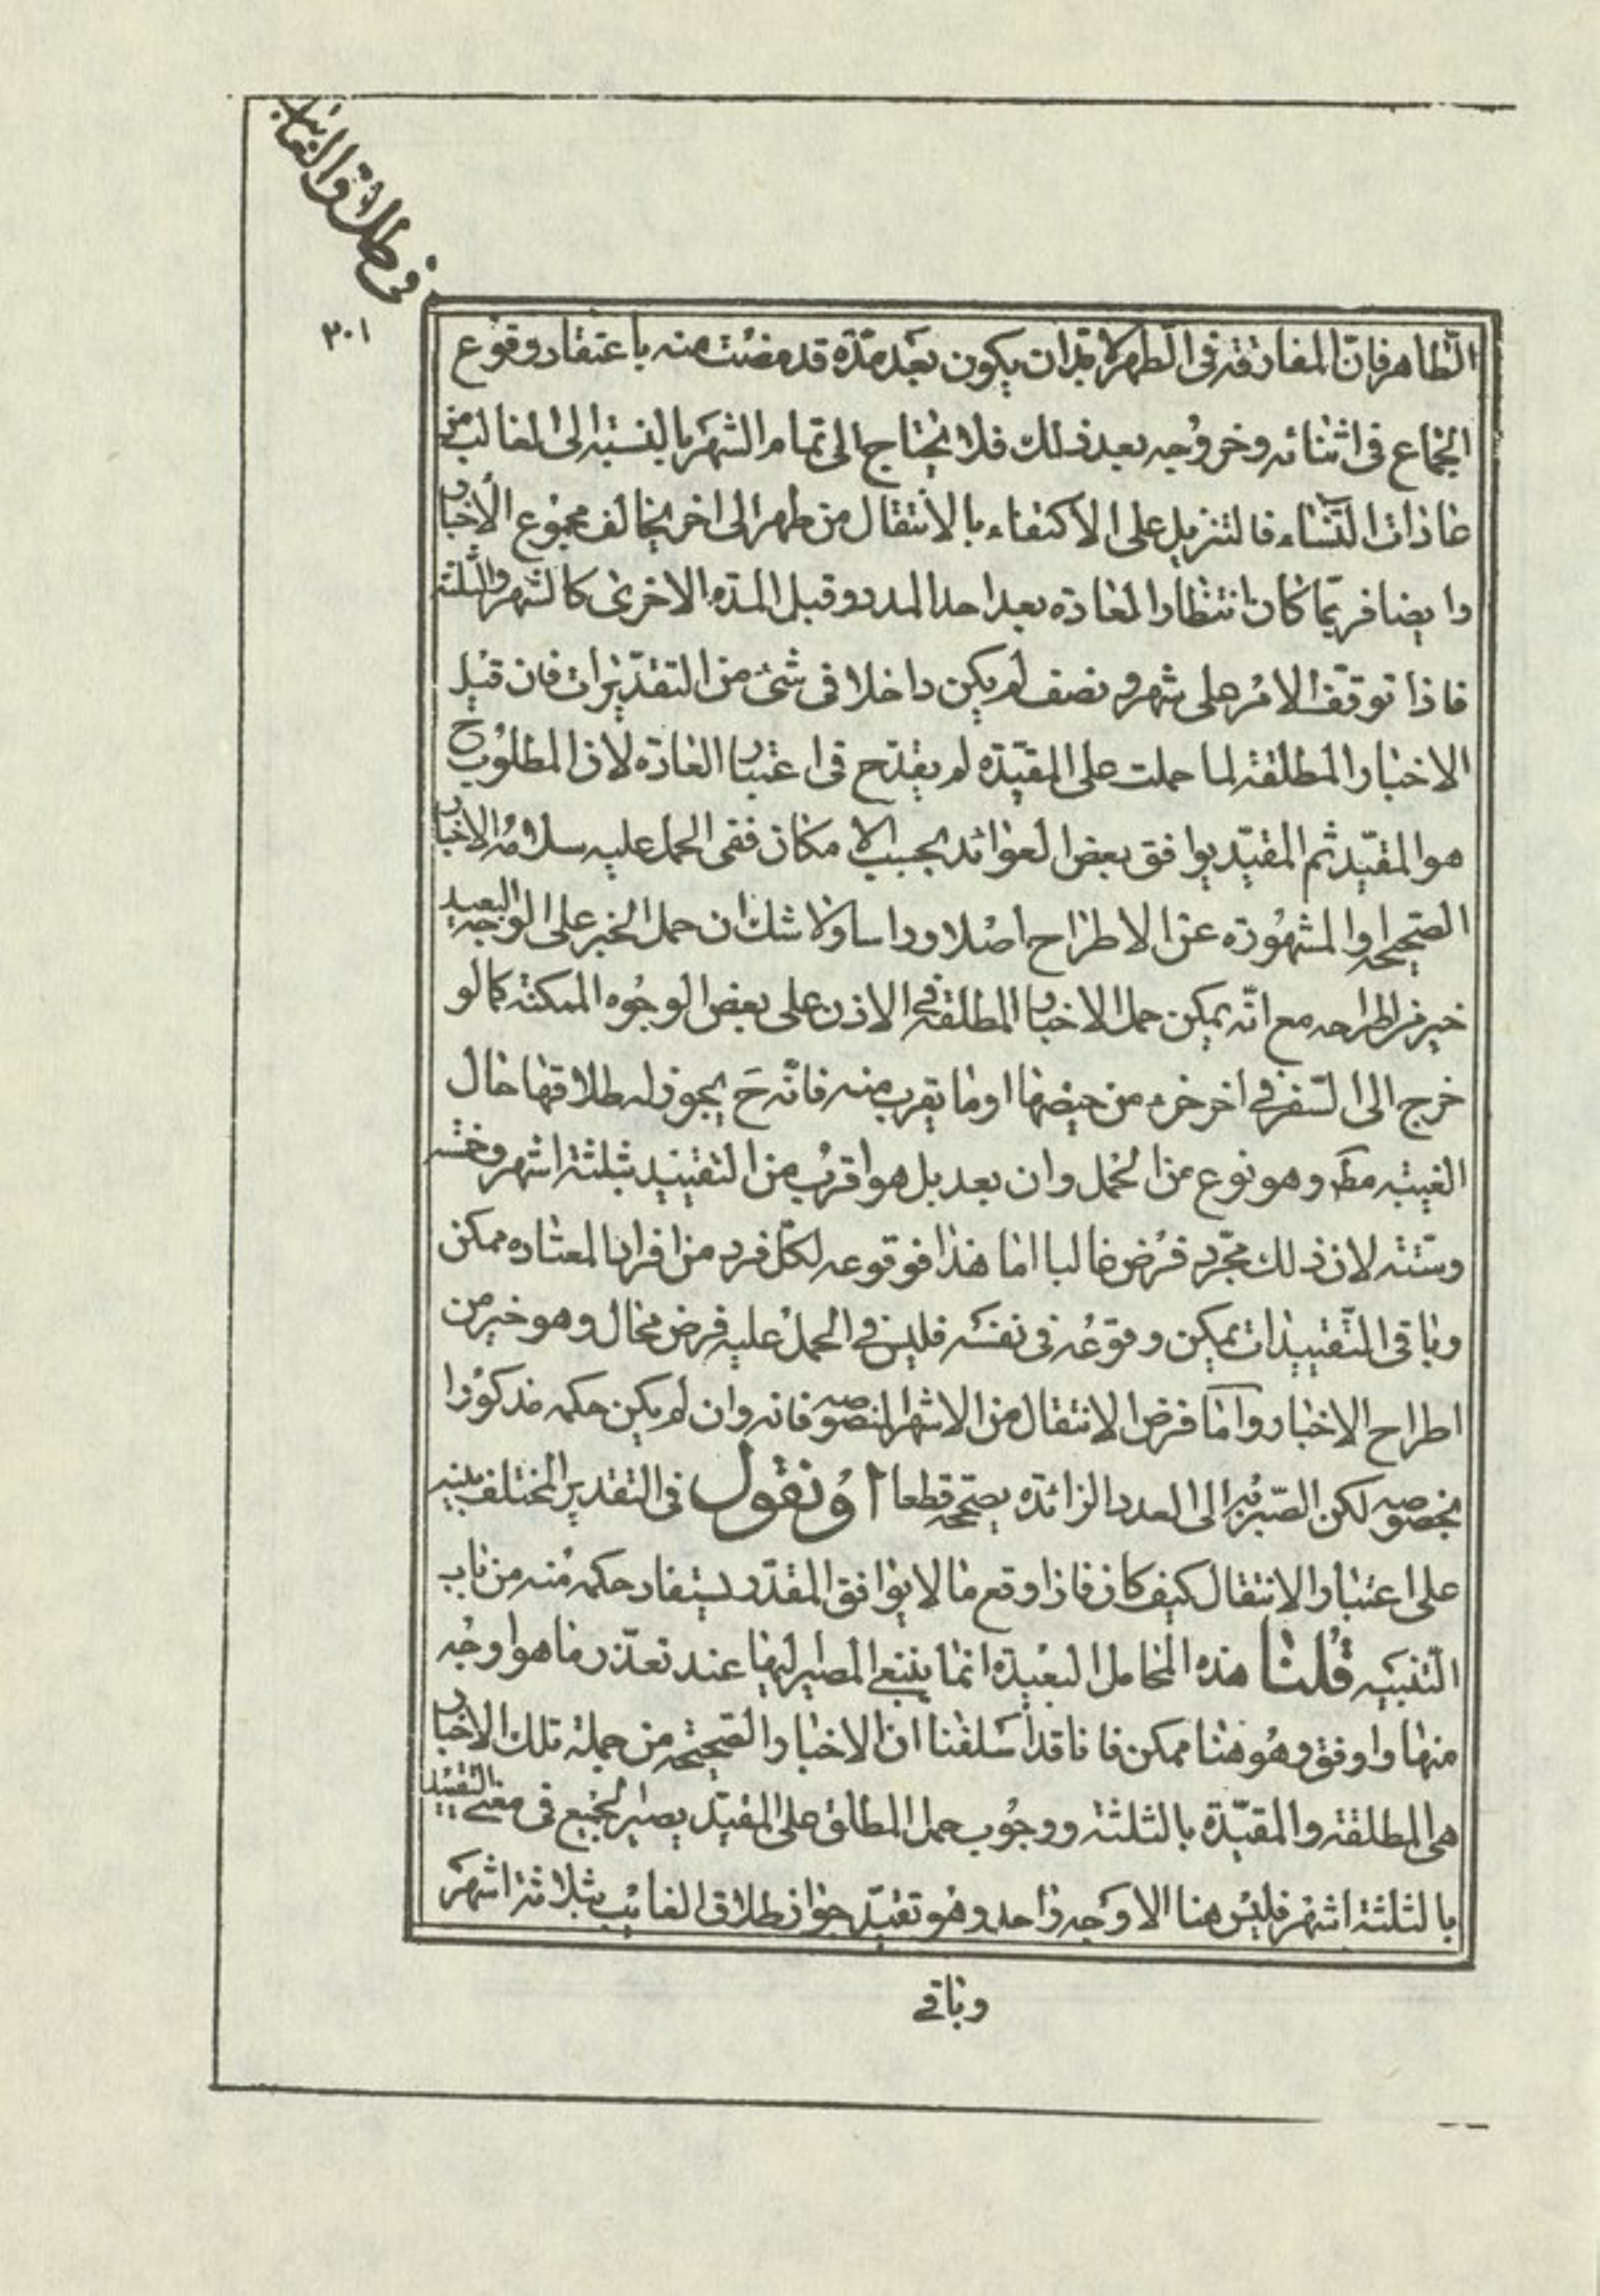 فى طلاق الغائب
٣٠١
الظاهر فانّ المفارقة فى الطهر لا بدّ ان يكون بعد مدّة قد مضت منه باعتقاد وقوع
الجماع فى اثنائه وخروجه بعد ذلك فلا يحتاج الى تمام الشهر بالنسبة الى الغالب من
عادات النساء فالتنزيل على الاكتفاء بالانتقال من طهر الى اخر يخالف مجموع الاخبار
وايضا فربّما كان انتظار العادة بعد احد المدد وقبل المدة الاخرى كالشهر والثلثة
فاذا توقّف الامر على شهر ونصف لم يكن داخلا فى شئ من التقديرات فان قيل
الاخبار المطلقة لما حملت على المقيّدة لم يقدح فى اعتبار العادة لان المطلوب ح
هو المقيّد ثم المقيّد يوافق بعض العوائد بحسب الامكان ففى الحمل عليه سلامة الاخبار
الصحيحة والمشهورة عن الاطراح اصلا وراسا ولا شك ان حمل الخبر على الوجه البعيد
خير من اطراحه مع انّه يمكن حمل الاخبار المطلقة فى الاذن على بعض الوجوه الممكنة كما لو
خرج الى السفر فى اخر جزء من حيضها او ما يقرب منه فانّه ح يجوز له طلاقها حال
الغيبة مط وهو نوع من الحمل وان بعد بل هو اقرب من التقييد بثلثة اشهر وخمسة
وستّة لان ذلك مجّرد فرض غالبا اما هذا فوقوعه لكلّ فرد من افراد المعتادة ممكن
وباقى التقييدات يمكن وقوعه فى نفسه فليس فى الحمل عليه فرض محال وهو خير من
اطراح الاخبار وامّا فرض الانتقال من الاشهر المنصوصة فانه وان لم يكن حكمه مذكورا
بخصوصه لكن الصّبر به الى العدد الزائدة يصححه قطعا او نقول فى التقدير المختلف بنيه
على اعتبار الانتقال كيف كان فاذا وقع ما لا يوافق المقدّر يستفاد حكمه منه من باب
التنبيه قلنا هذه المحامل البعيدة انما ينبغى المصير اليها عند تعذّر ما هو اوجه
منها واوفق وهو هنا ممكن فانا قد اسلفنا ان الاخبار الصحيحة من جملة تلك الاخبار
هى المطلقة والمقيّدة بالثلثة ووجوب حمل المطلق على المقيّد يصير الجميع فى معنى التقييد
بالثلثة اشهر فليس هنا الا وجه واحد وهو تقيّد جواز طلاق الغائب بثلاثة اشهر
وباقى